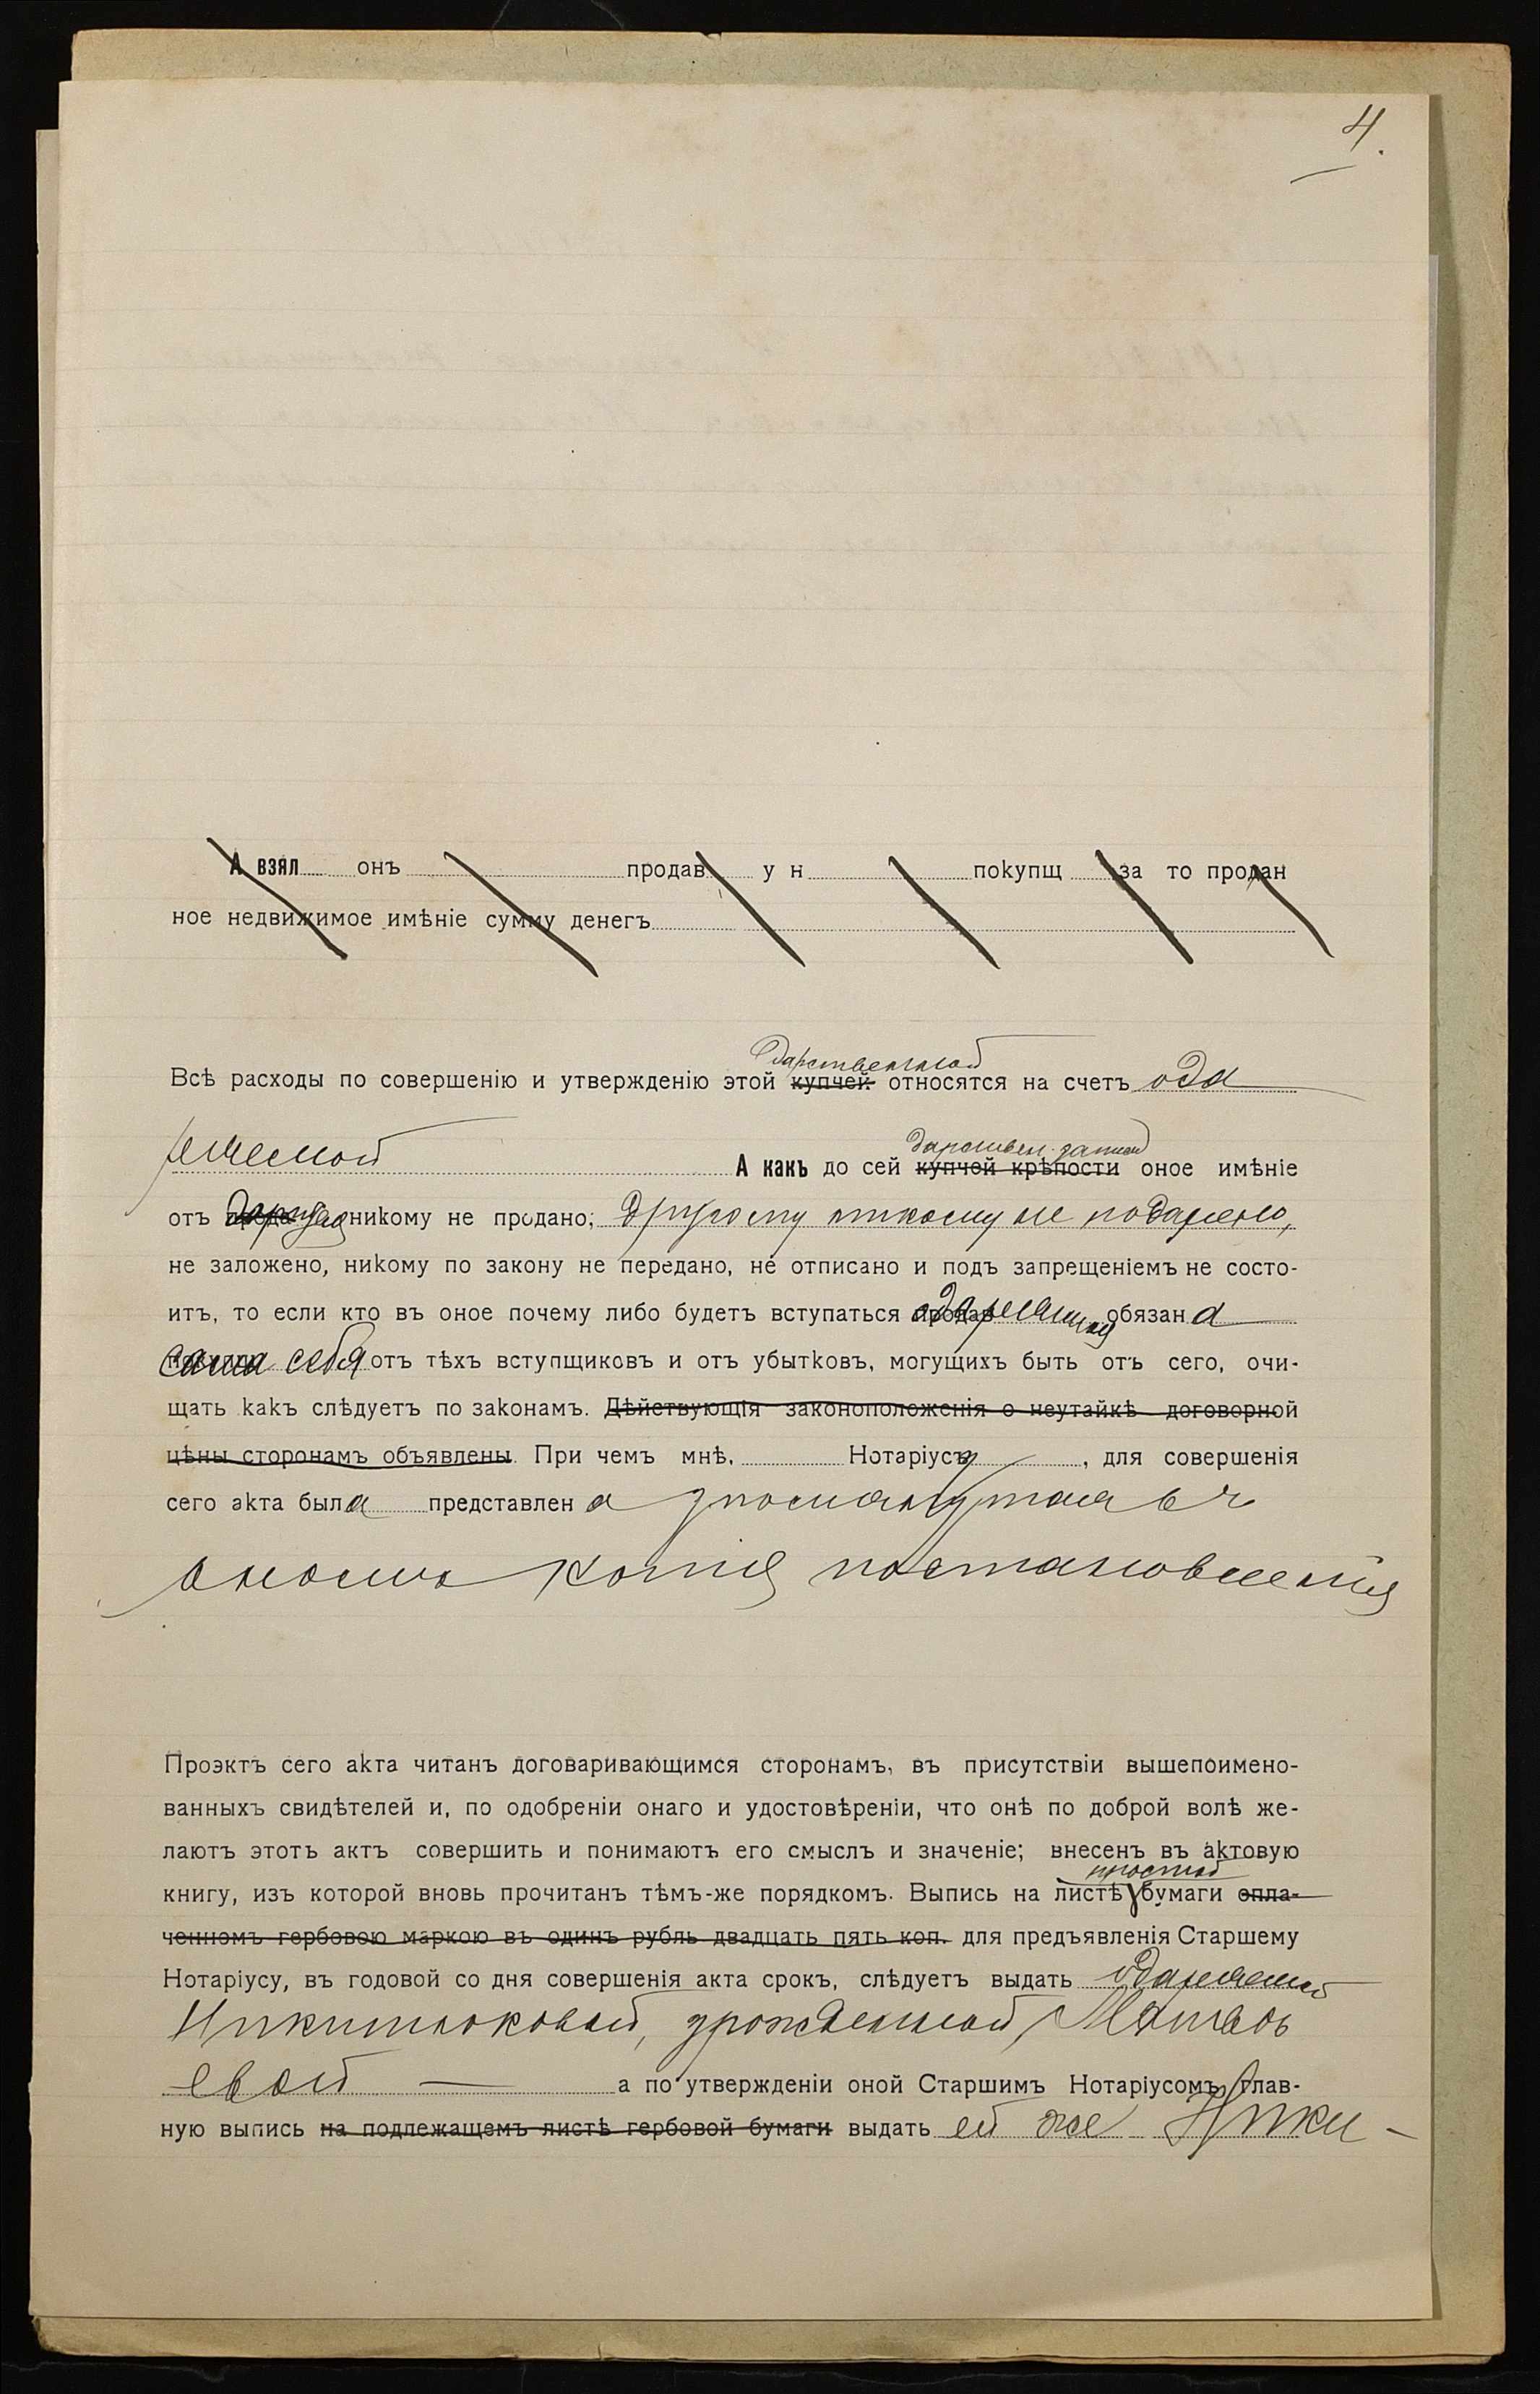 4.
А взял онъ продав у н покупщ за то продан
ное недвижимое имѣніе сумму денегъ
дарственной
Всѣ расходы по совершенію и утвержденію этой купчей относятся на счетъ ода
ряемой
дарствен. записи
А какъ до сей купчей крѣпости оное имѣніе
отъ никому не продано; другому никому не подарено,
не заложено, никому по закону не передано, не отписано и подъ запрещеніемъ не состо-
итъ, то если кто въ оное почему либо будетъ вступаться обязан а
сама себя отъ тѣхъ вступщиковъ и отъ убытковъ, могущихъ быть отъ сего, очи-
щать какъ слѣдуетъ по законамъ. Дѣйствующія законоположенія о неутайкѣ договорной
цѣны сторонамъ объявлены. При чемъ мнѣ, Нотаріусу, для совершенія
сего акта была представлен а упомянутая въ
ономъ копія постановленія
Проэктъ сего акта читанъ договаривающимся сторонамъ, въ присутствіи вышепоимено-
ванныхъ свидѣтелей и, по одобреніи онаго и удостовѣреніи, что онѣ по доброй волѣ же-
лаютъ этотъ актъ совершить и понимаютъ его смыслъ и значеніе; внесенъ въ актовую
простой
книгу, изъ которой вновь прочитанъ тѣмъ-же порядкомъ. Выпись на листѣ бумаги опла-
ченномъ гербовою маркою въ одинъ рубль двадцать пять коп. для предъявленія Старшему
Нотаріусу, въ годовой со дня совершенія акта срокъ, слѣдуетъ выдать одаряемой
Никитюковой, урожденной Матвѣ
евой — а по утвержденіи оной Старшимъ Нотаріусомъ глав-
ную выпись на подлежащемъ листѣ гербовой бумаги выдать ей же Ники-